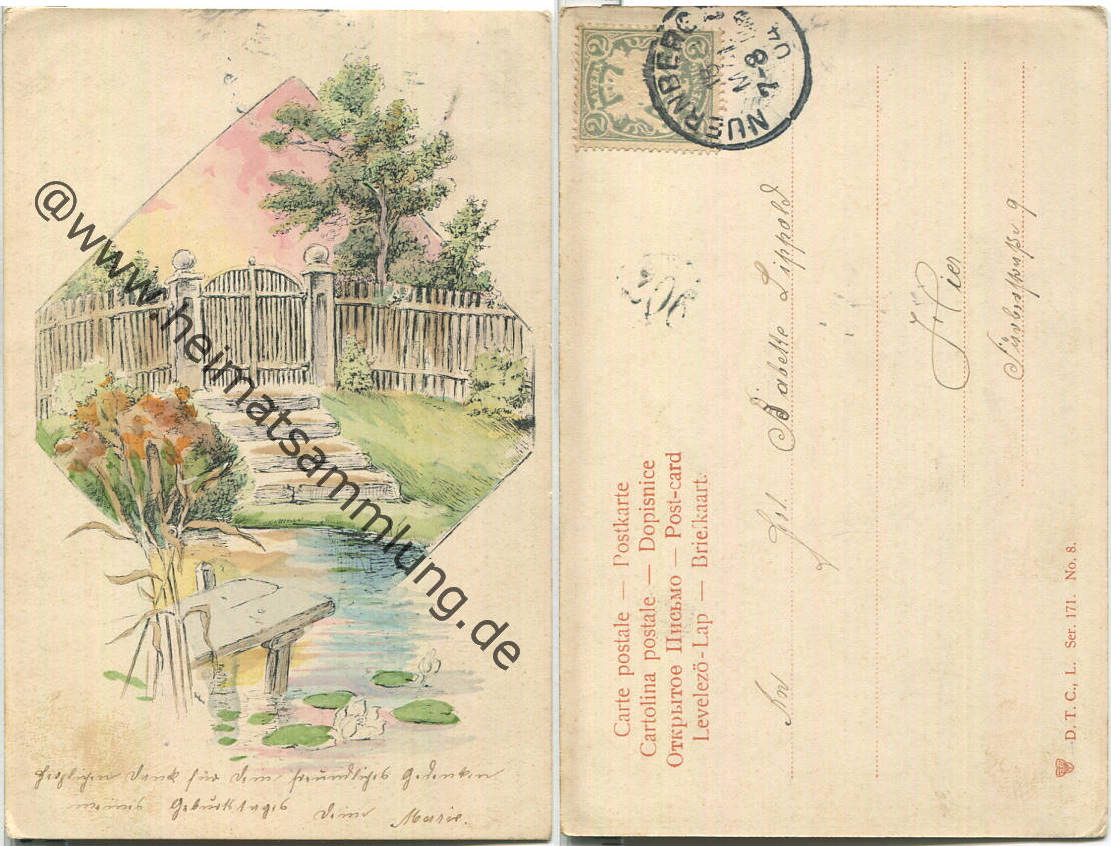 @www.heimatsammlung.de
Herzlichen Dank für dein freundliches Gedenken
meines Geburtstages Deine Marie.
2 2
2 2
NUERNBERG 2
04
Carte postale — Postkarte
Cartolina postale — Dopisnice
Открытое Письмо — Post-card
Levelező-Lap — Briefkaart.
An Frl. Babette Lippold
Hier
9
D. T. C., L. Ser. 171. No. 8.